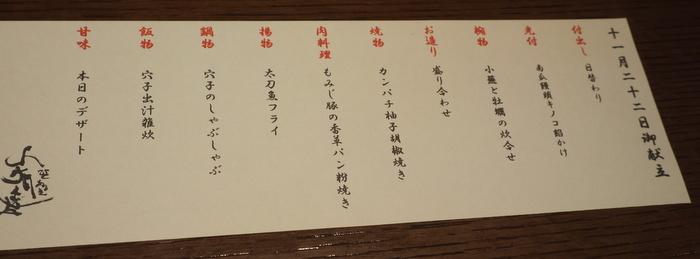 十一月二十二日御献立
付出し 日替わり
先付 南瓜饅頭キノコ餡かけ
椀物 小蕪と牡蠣の炊合せ
お造り 盛り合わせ
焼物 カンパチ柚子胡椒焼き
肉料理 もみじ豚の香草パン粉焼き
揚物 太刀魚フライ
鍋物 穴子のしゃぶしゃぶ
飯物 穴子出汁雑炊
甘味 本日のデザート